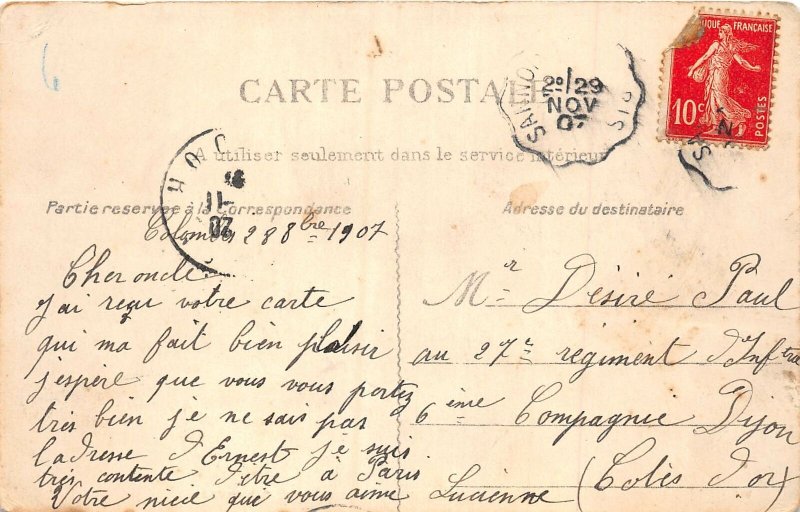 CARTE POSTALE
A utiliser seulement dans le service intérieur
RÉPUBLIQUE FRANÇAISE
10c
POSTES
2º/29
NOV
07
11
07
Partie reservée à la Correspondance
Adresse du destinataire
288bre 1907
Cher oncle
J'ai reçu votre carte
qui ma fait bien plaisir
j'espère que vous vous portez
très bien je ne sais pas
ladresse d'Ernest je suis
très contente d'être à Paris
Votre nièce que vous aime Lucienne
Mr Désiré Paul
au 27e regiment d'Inftrie
6ème Compagnie Dijon
(Cotes d'or)